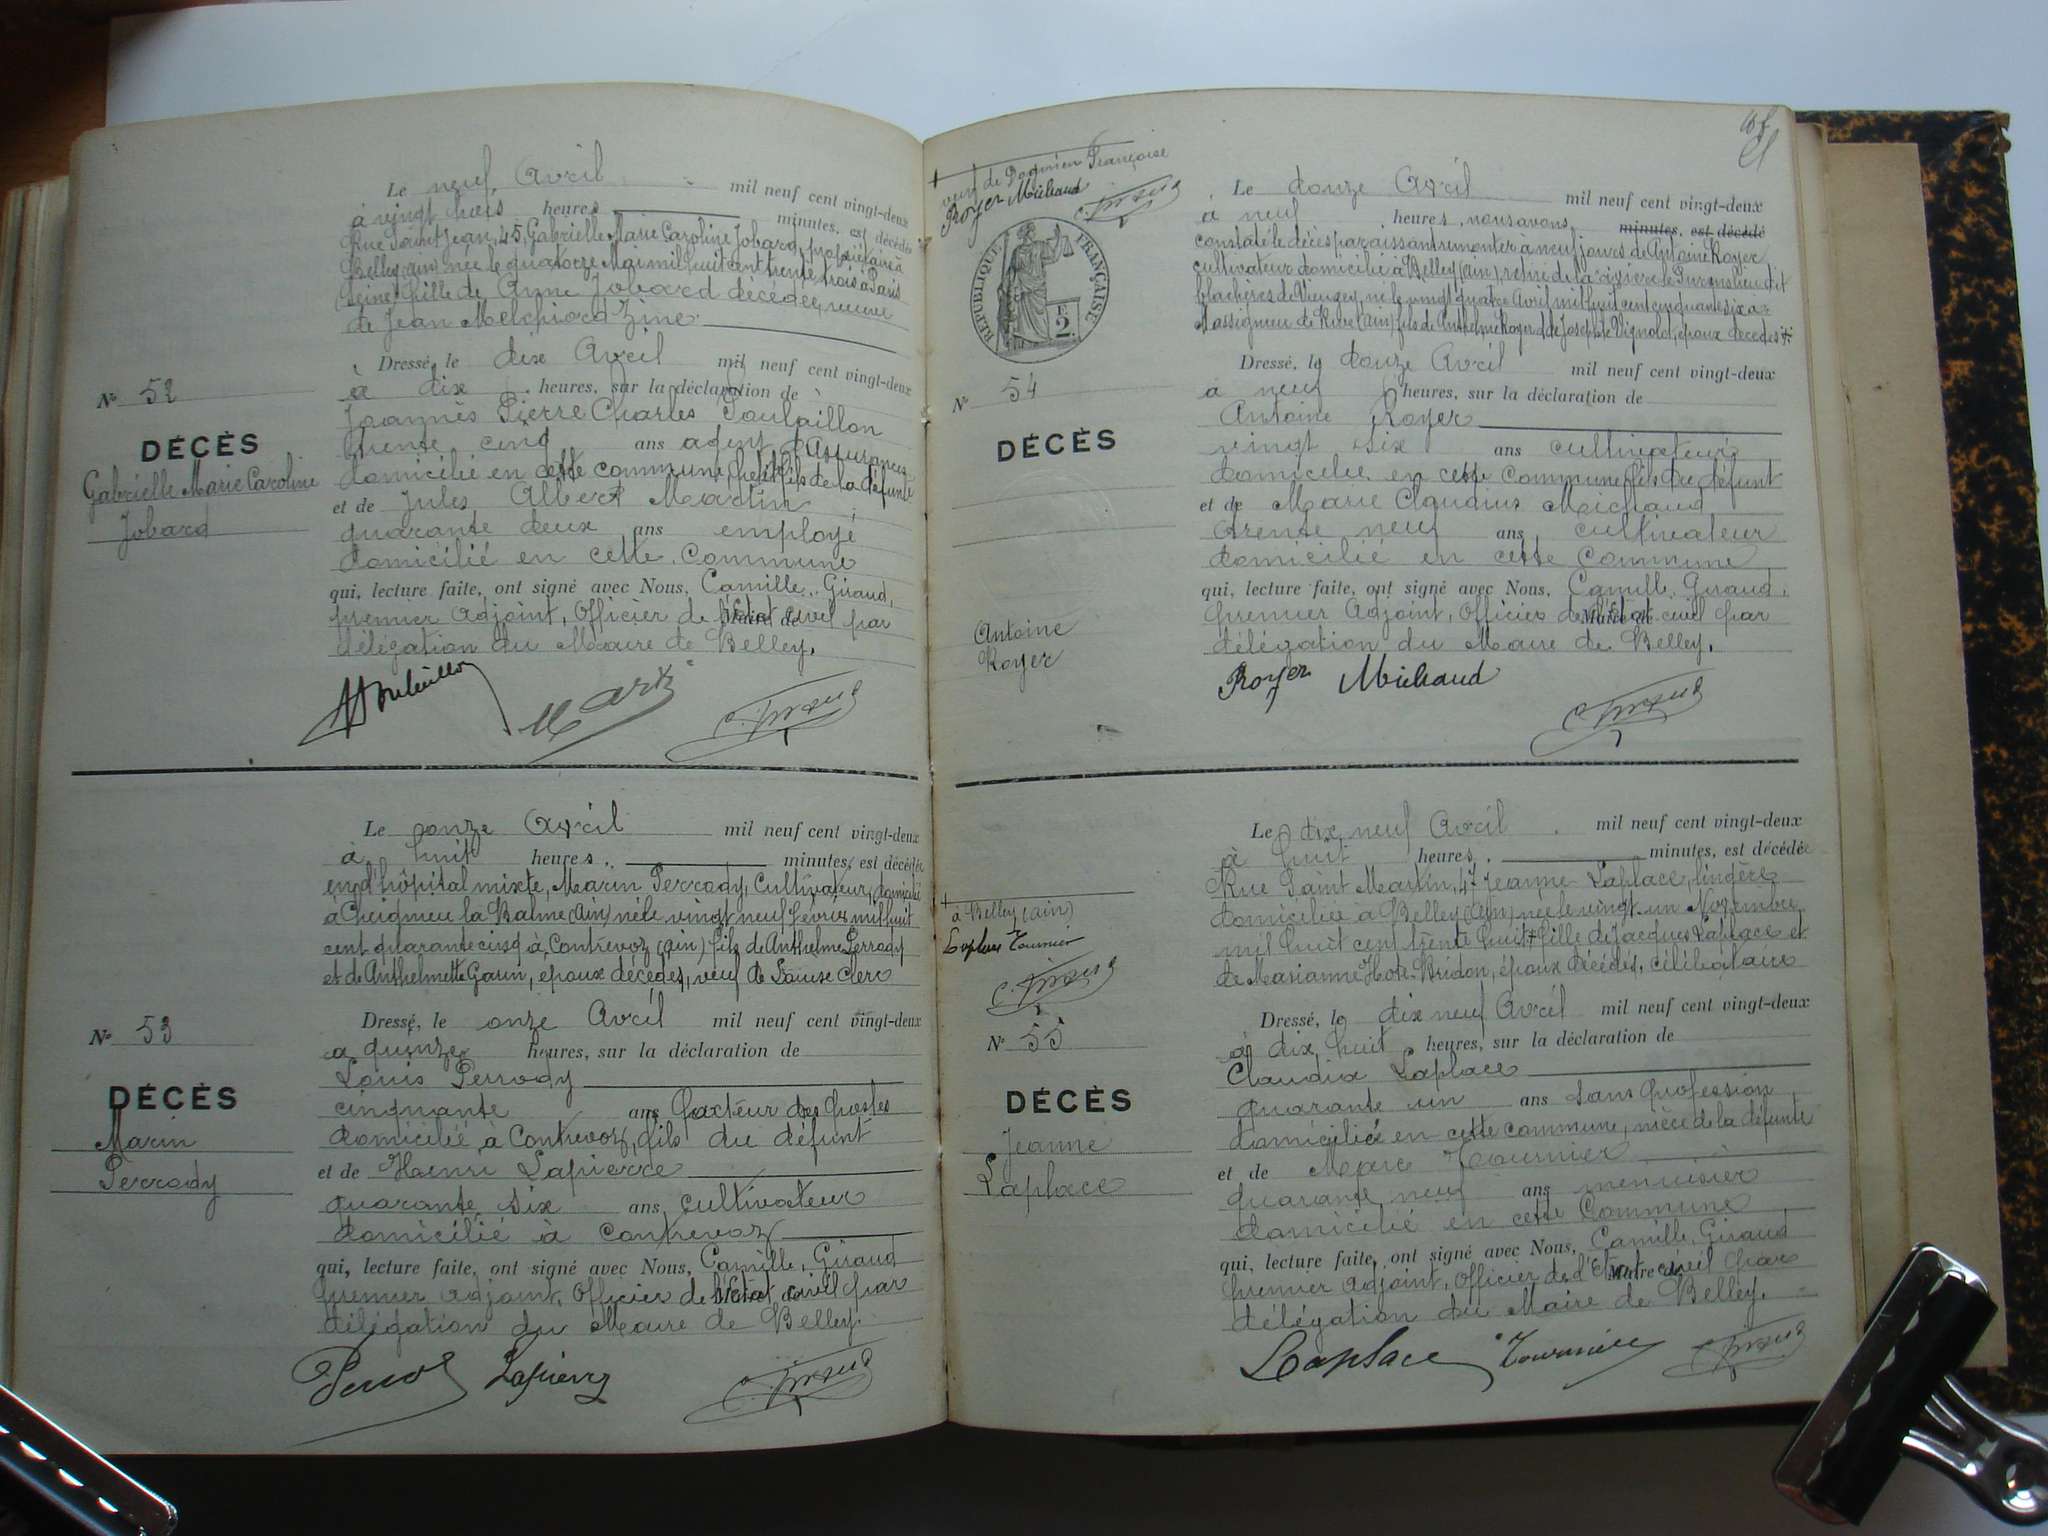 Le neuf Avril mil neuf cent vingt-deux
à vingt trois heures minutes, est décédée
Rue Saint Jean, 45, Gabrielle Marie Caroline Jobard, propriétaire à
Belley (ain) née le quatorze Mai mil huit cent trente trois à Paris
(Seine) fille de Anne Jobard décédée, veuve
de Jean Melchiord Zine.
Dressé, le dix Avril mil neuf cent vingt-deux
à dix heures, sur la déclaration de
Joannès Pierre Charles
trente cinq ans agent d'Assurances
domicilié en cette commune, petit fils de la défunte
et de Jules Albert Martin
quarante deux ans employé
domicilié en cette Commune
qui, lecture faite, ont signé avec Nous, Camille Giraud,
premier Adjoint, Officier de l'Etat civil par
Maire de
délégation du Maire de Belley.
N° 52
DÉCÈS
Gabrielle Marie Caroline
Jobard
Le onze Avril mil neuf cent vingt-deux
à huit heures, minutes, est décédé
en l'hôpital mixte, Marin Perrody, Cultivateur, domicilié
à Cheignieu la Balme (Ain) né le vingt neuf février mil huit
cent quarante cinq à Contrevoz (ain) fils de Anthelme Perrody
et de Anthelmette Garin, époux décédés, veuf de Louise Clerc
N° 53
DÉCÈS
Marin
Perrody
Dressé, le onze Avril mil neuf cent vingt-deux
à quinze heures, sur la déclaration de
Louis Perrody
cinquante ans facteur des postes
domicilié à Contrevoz, fils du défunt
et de Henri Lapierre
quarante six ans cultivateur
domicilié à Contrevoz
qui, lecture faite, ont signé avec Nous, Camille Giraud
premier adjoint, Officier de l'Etat civil par
délégation du Maire de Belley.
Lapierre
veuf de Françoise
Royer Michaud
C. Giraud
RÉPUBLIQUE FRANÇAISE
2
N° 54
DÉCÈS
Antoine
Royer
Le douze Avril mil neuf cent vingt-deux
à neuf heures, nous avons minutes, est décédé
constaté le décès paraissant remonter à neuf jours de Antoine Royer
cultivateur domicilié à Belley (ain)
né le vingt quatre Avril mil huit cent cinquante six à
Massignieu de Rives (Ain) fils de Anthelme Royer et de Josephte Vignolet, époux décédés +
Dressé, le douze Avril mil neuf cent vingt-deux
à neuf heures, sur la déclaration de
Antoine Royer
vingt six ans cultivateur
domicilié en cette Commune fils du défunt
et de Marie Claudius Michaud
trente neuf ans cultivateur
domicilié en cette Commune
qui, lecture faite, ont signé avec Nous, Camille Giraud,
premier Adjoint, Officier de l'Etat civil par
Maire de
délégation du Maire de Belley.
Royer Michaud C. Giraud
Le dix neuf Avril mil neuf cent vingt-deux
à huit heures, minutes, est décédée
Rue Saint Martin, 47 Jeanne Laplace, lingère
domiciliée à Belley (Ain) née le vingt un Novembre
mil huit cent trente huit + fille de Jacques Laplace et
de Marianne Hote-Bridon, époux décédés, célibataire
+ à Belley (ain)
Laplace Tournier
C. Giraud
N° 55
DÉCÈS
Jeanne
Laplace
Dressé, le dix neuf Avril mil neuf cent vingt-deux
à dix huit heures, sur la déclaration de
Claudia Laplace
quarante un ans sans profession
domiciliée en cette commune, nièce de la défunte
et de Marc Tournier
quarante neuf ans menuisier
domicilié en cette Commune
qui, lecture faite, ont signé avec Nous, Camille Giraud
premier adjoint, Officier de l'Etat civil par
Maire de
délégation du Maire de Belley.
Laplace Tournier C. Giraud